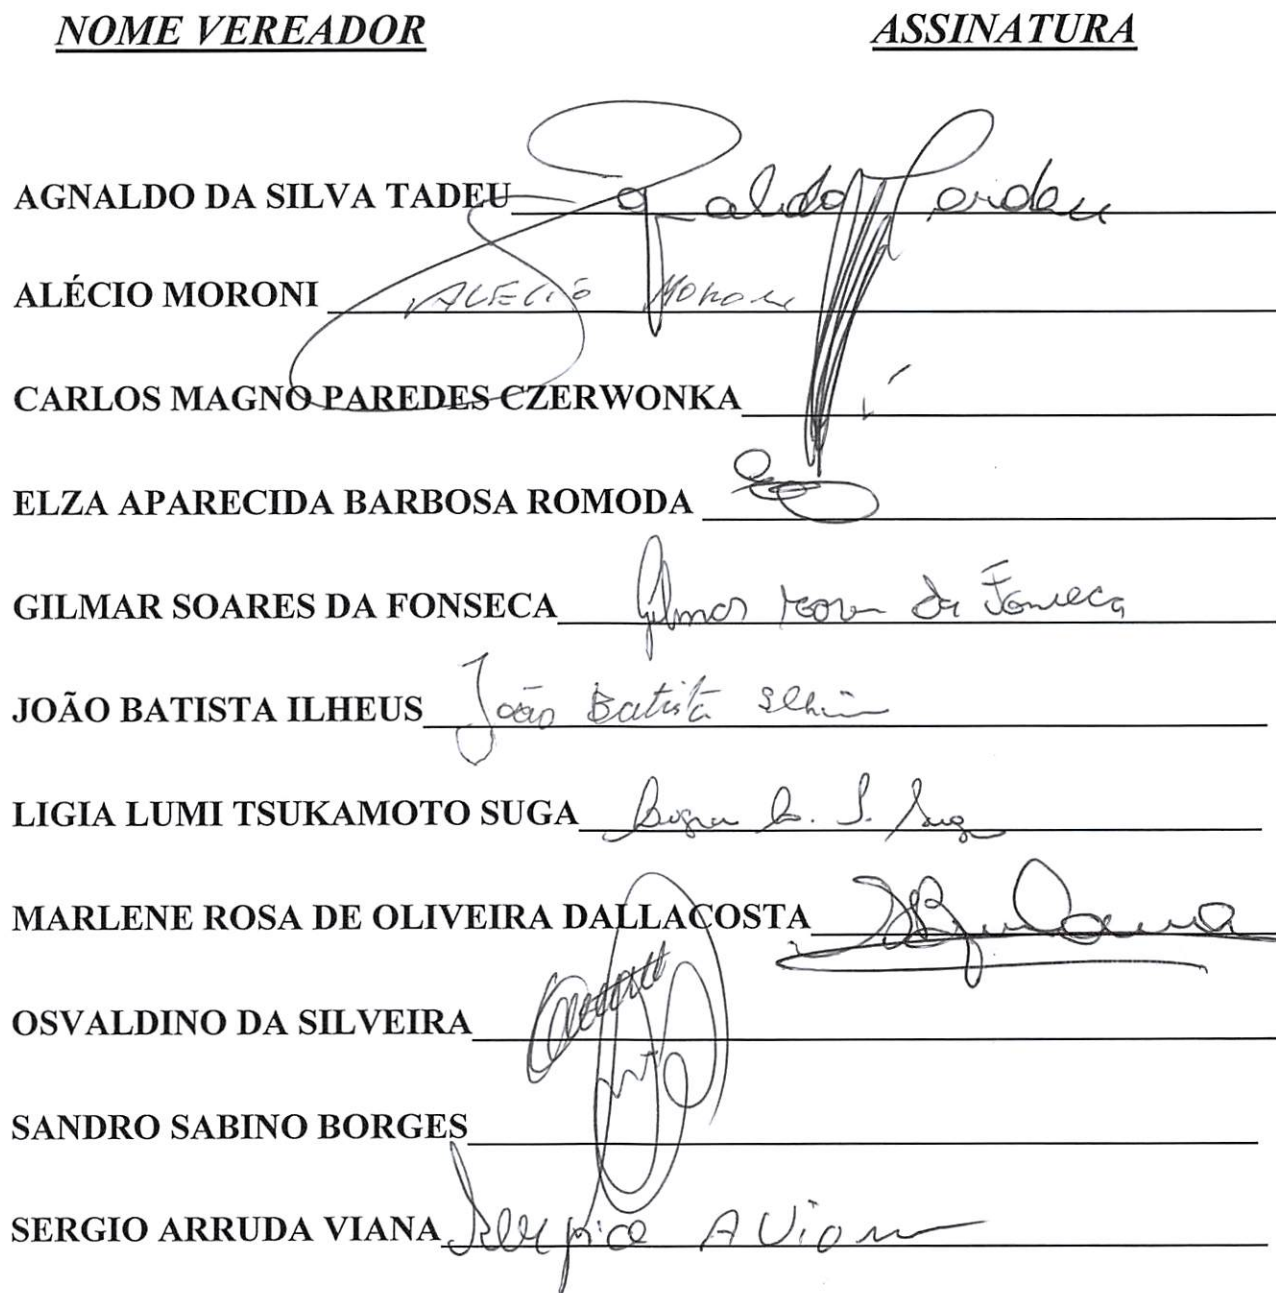 NOME VEREADOR ASSINATURA
AGNALDO DA SILVA TADEU
ALÉCIO MORONI ALECIO MORONI
CARLOS MAGNO PAREDES CZERWONKA
ELZA APARECIDA BARBOSA ROMODA
GILMAR SOARES DA FONSECA Gilmar da Fonseca
JOÃO BATISTA ILHEUS João Batista
LIGIA LUMI TSUKAMOTO SUGA
MARLENE ROSA DE OLIVEIRA DALLACOSTA
OSVALDINO DA SILVEIRA
SANDRO SABINO BORGES
SERGIO ARRUDA VIANA A Viana